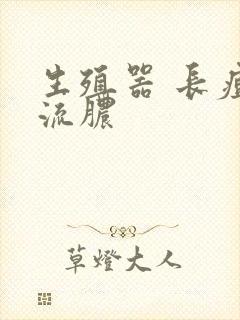 生殖器 長痘
流膿
草燈大人